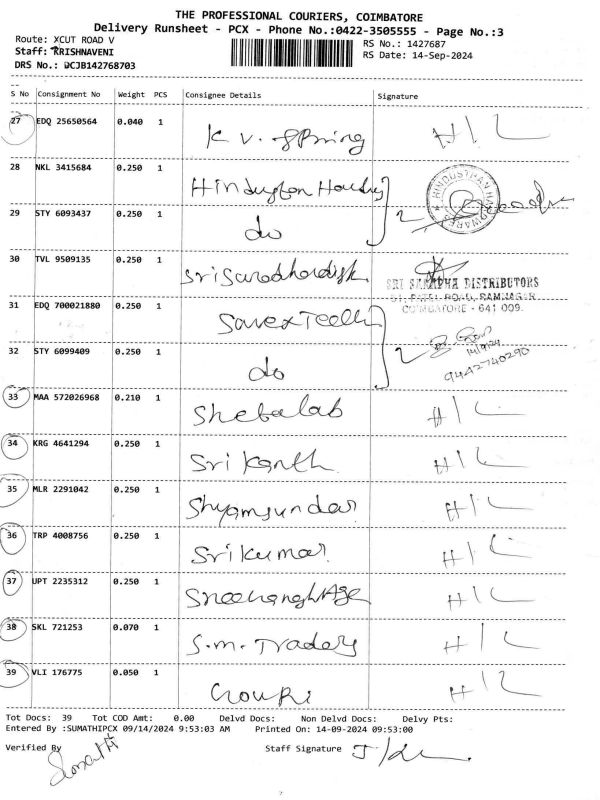 THE PROFESSIONAL COURIERS, COIMBATORE
Delivery Runsheet - PCX - Phone No.:0422-3505555 - Page No.:3
Route: XCUT ROAD V
RS No.: 1427687
Staff: KRISHNAVENI
RS Date: 14-Sep-2024
DRS No.: DCJB142768703
S No Consignment No Weight PCS Consignee Details Signature
27 EDQ 25650564 0.040 1 K V. Spring H/L
28 NKL 3415684 0.250 1
HINDUSTAN HARDWARES
29 STY 6093437 0.250 1 do 2
30 TVL 9509135 0.250 1
SRI SARADHA DISTRIBUTORS
RAMNAGAR
COIMBATORE - 641 009.
31 EDQ 700021880 0.250 1
14/9/24
32 STY 6099409 0.250 1 do 2
9442740290
33 MAA 572026968 0.210 1 Shebalab H/L
34 KRG 4641294 0.250 1 Sri Kanth H/L
35 MLR 2291042 0.250 1 Shyamsundar H/L
36 TRP 4008756 0.250 1 Srikumar H/L
37 UPT 2235312 0.250 1 H/L
38 SKL 721253 0.070 1 S.M. Traders H/L
39 VLI 176775 0.050 1 Gouri H/L
Tot Docs: 39 Tot COD Amt: 0.00 Delvd Docs: Non Delvd Docs: Delvy Pts:
Entered By :SUMATHIPCX 09/14/2024 9:53:03 AM Printed On: 14-09-2024 09:53:00
Verified By Staff Signature